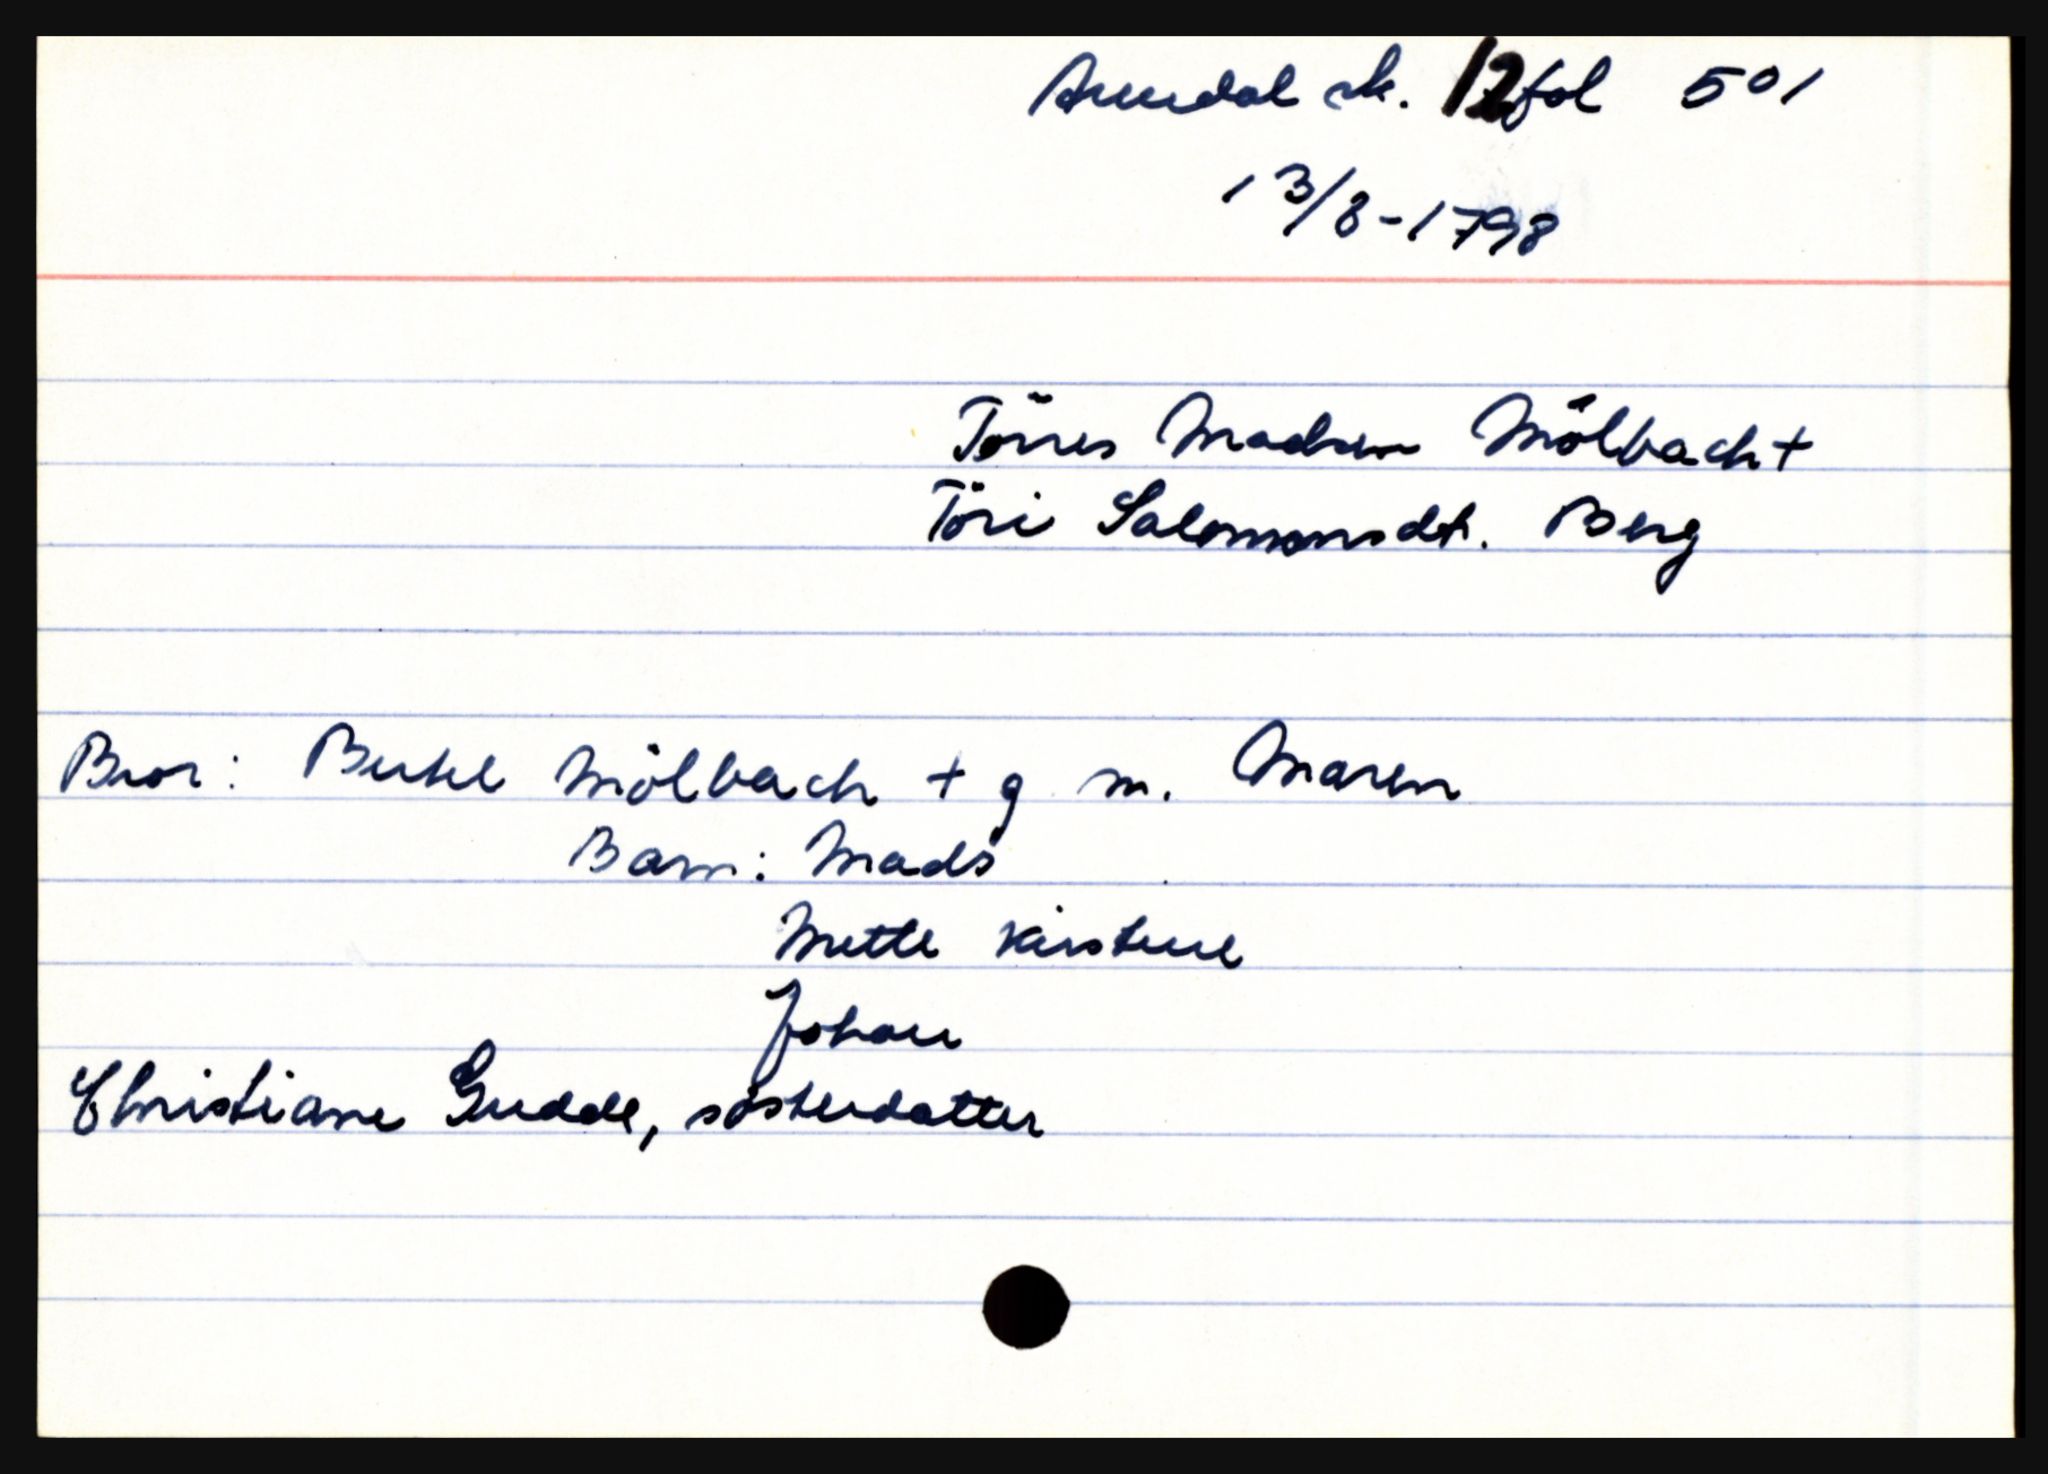 Arendal sk. 12 fol 501
13/8-1798
Törres Madsen Mölbach +
Töri Salomonsdt. Berg
Bror: Bertel Mölbach + g m. Maren
Barn: Mads
Mette Kirstene
Johan
Christiane Gudde, sösterdatter